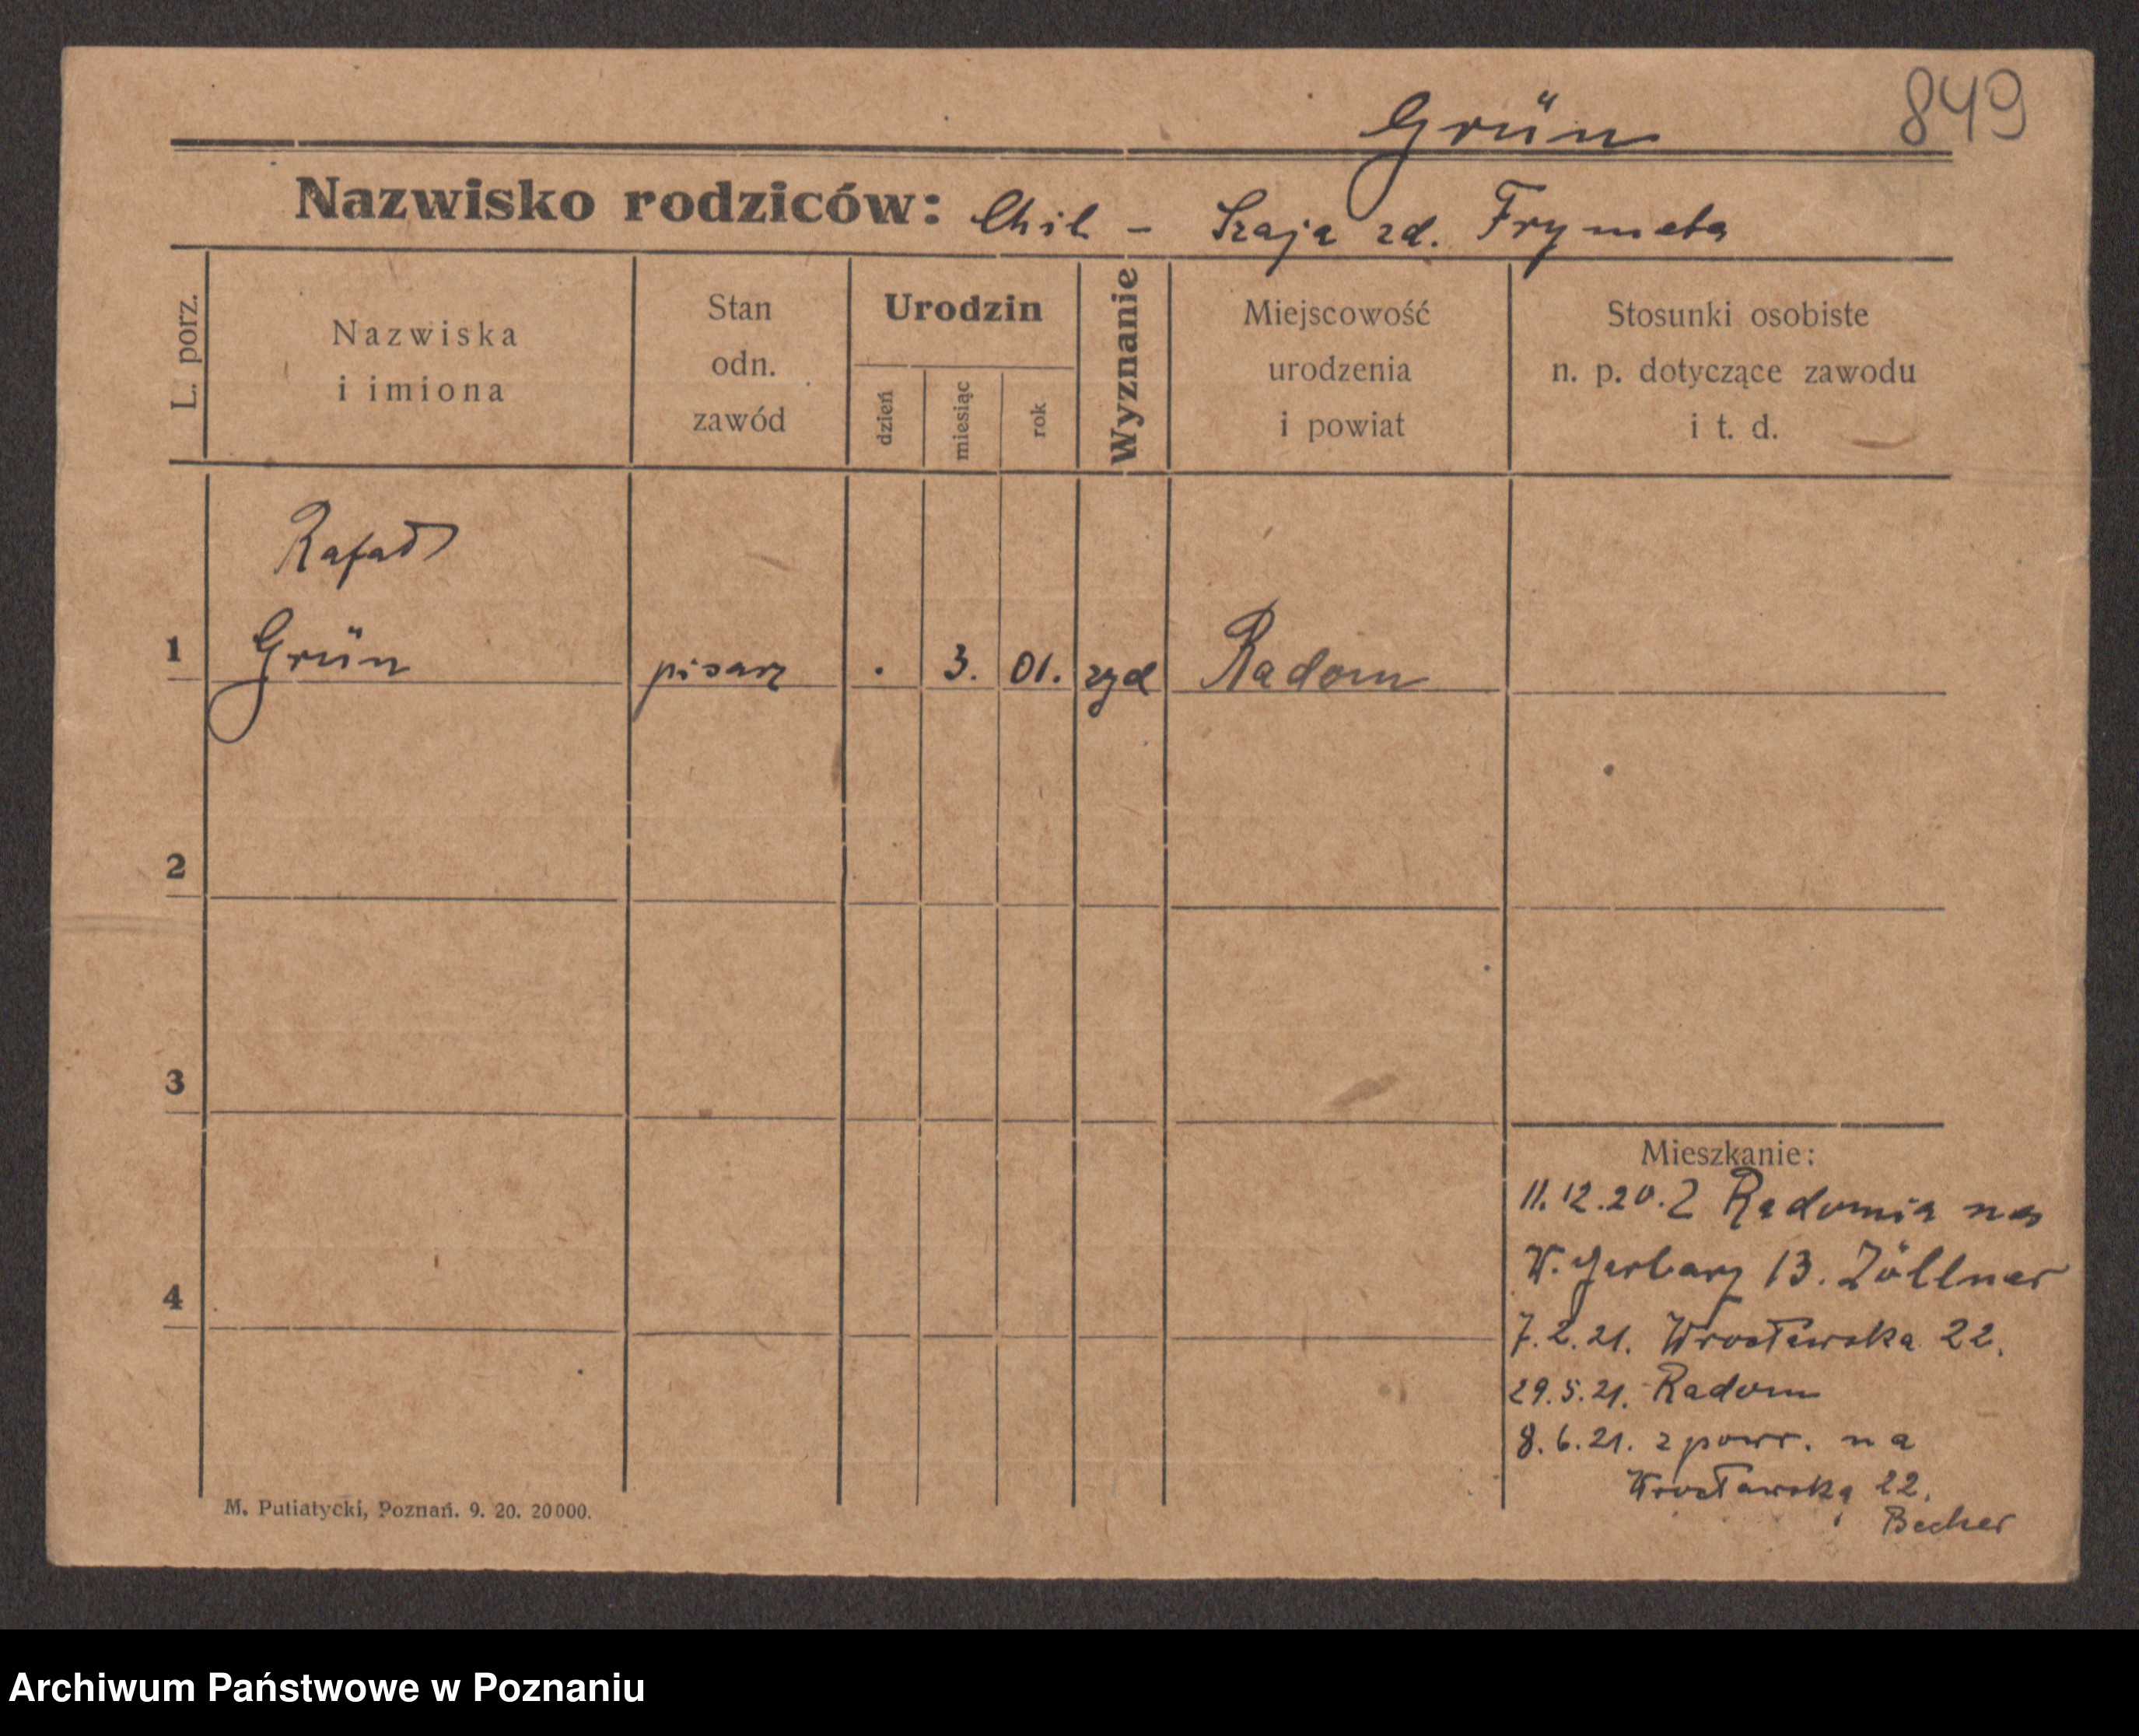 Grün
849
Nazwisko rodziców: Chil - Szaja zd. Frymeta
L. porz.
Nazwiska
i imiona
Stan
odn.
zawód
Urodzin
dzień
miesiąc
rok
Wyznanie
Miejscowość
urodzenia
i powiat
Stosunki osobiste
n. p. dotyczące zawodu
i t. d.
Rafał
1 Grün pisarz . 3. 01. zyd Radom
2
3
4
Mieszkanie:
11.12.20. Z Radomia na
W. Garbary 13. Zöllner
7.2.21. Wrocławska 22.
29.5.21. Radom
8.6.21. z powr. na
Wrocławską 22.
Becher
M. Putiatycki, Poznań. 9. 20. 20000.
Archiwum Państwowe w Poznaniu